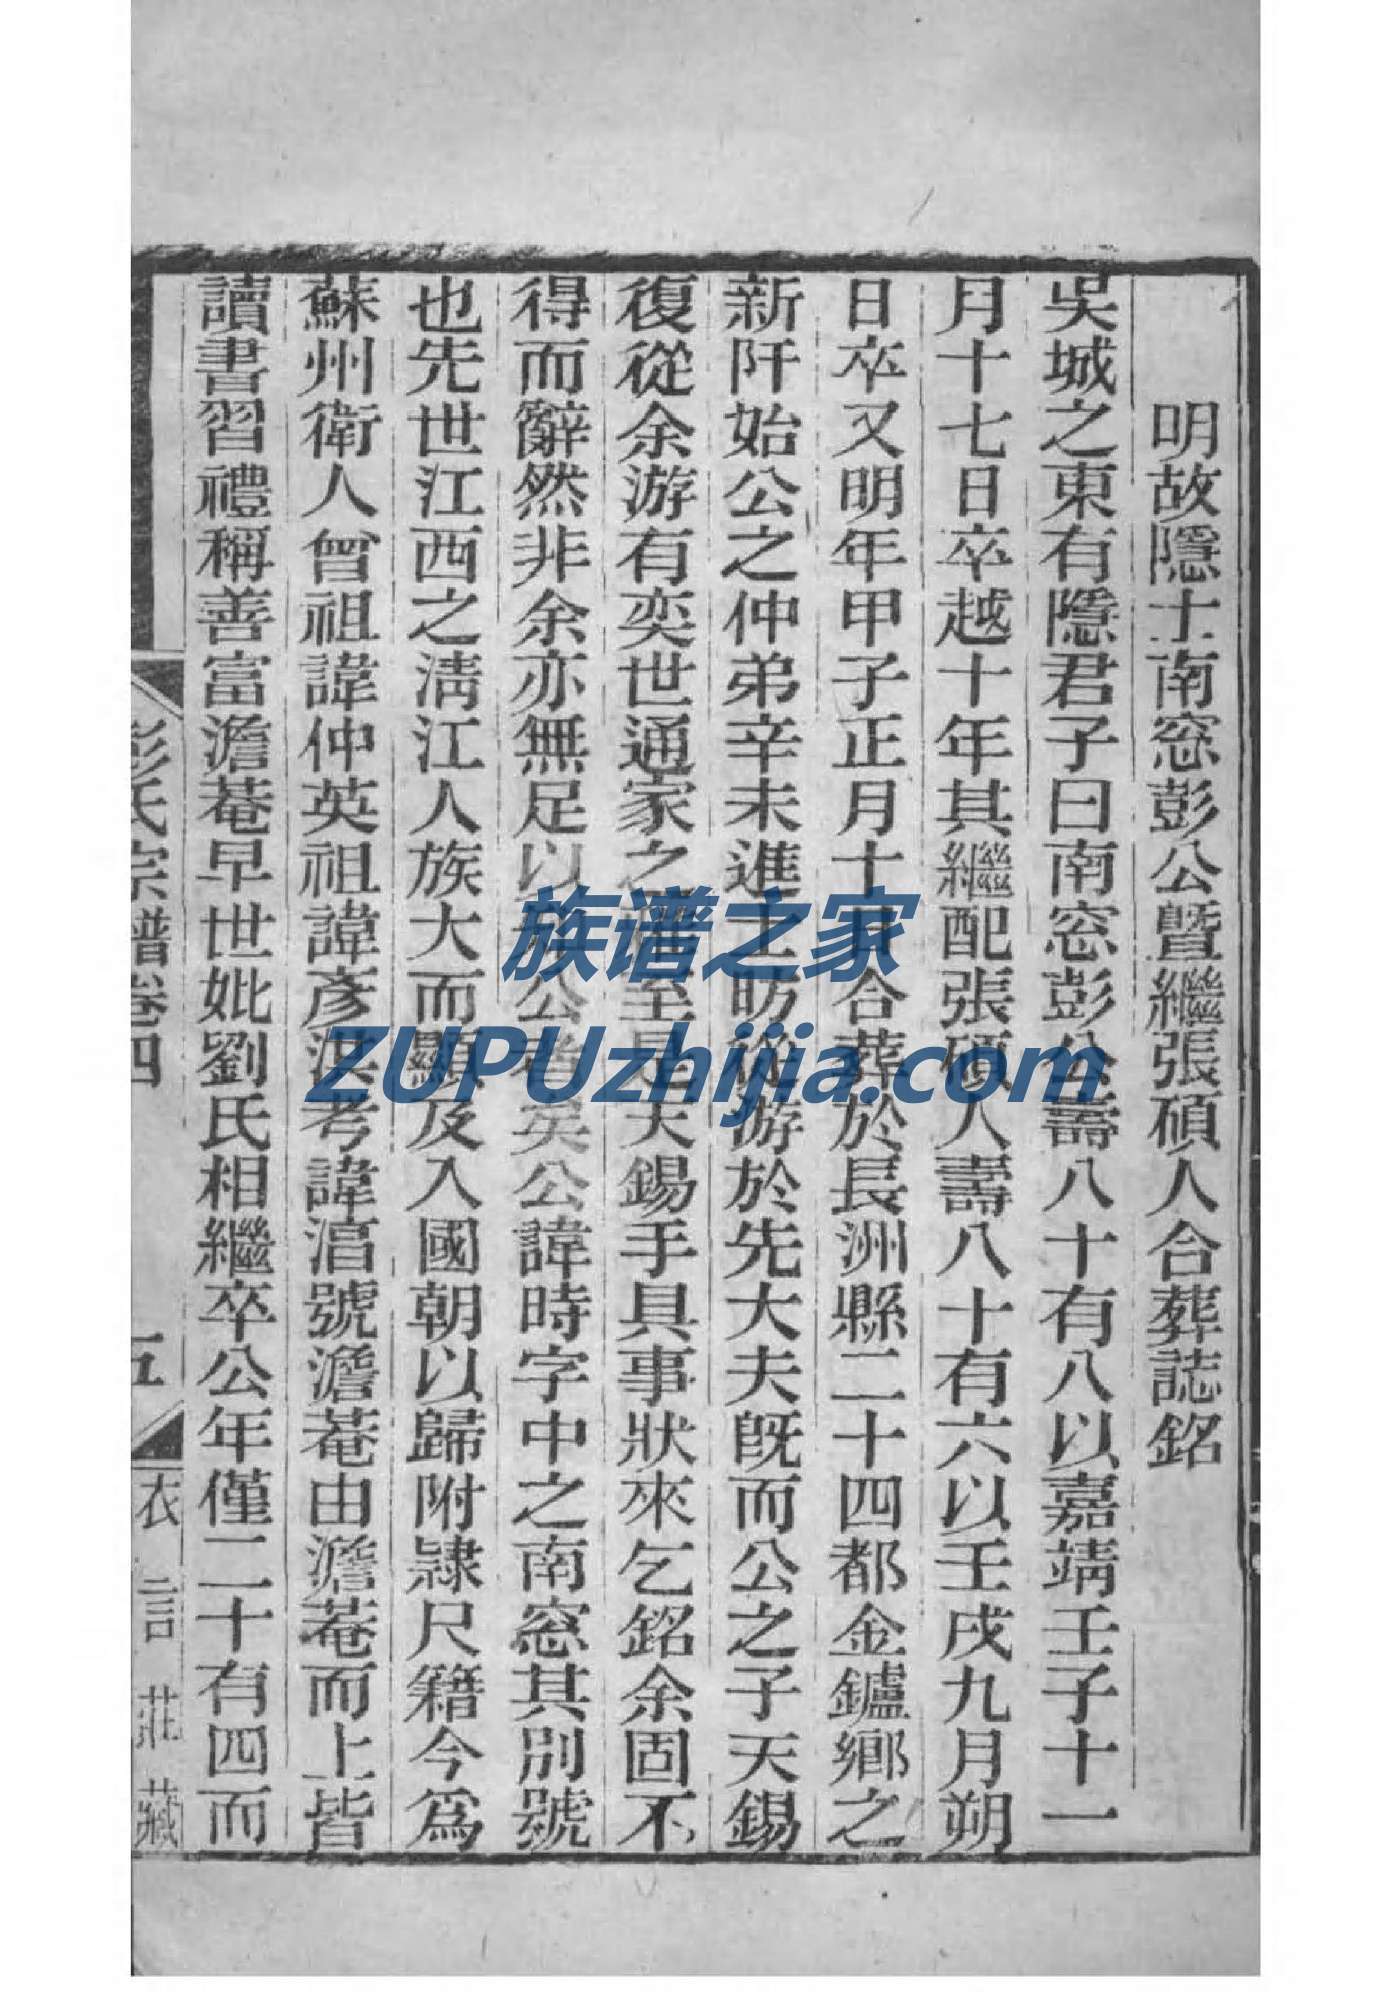 明故隱士南窓彭公曁繼張碩人合葬誌銘
吳城之東有隱君子曰南窓彭公壽八十有八以嘉靖壬子十一
月十七日卒越十年其繼配張碩人壽八十有六以壬戌九月朔
日卒又明年甲子正月十日合葬於長洲縣二十四都金鑪鄉之
新阡始公之仲弟辛未進士昉從游於先大夫旣而公之子天錫
復從余游有奕世通家之 至是天錫手具事狀來乞銘余固不
得而辭然非余亦無足以 公者矣公諱時字中之南窓其別號
也先世江西之淸江人族大而顯及入國朝以歸附隷尺籍今爲
蘇州衛人曾祖諱仲英祖諱彥洪考諱淊號澹菴由澹菴而上皆
讀書習禮稱善富澹菴早世妣劉氏相繼卒公年僅二十有四而
彭氏宗譜卷四
五
衣言莊藏
族谱之家
ZUPUzhijia.com